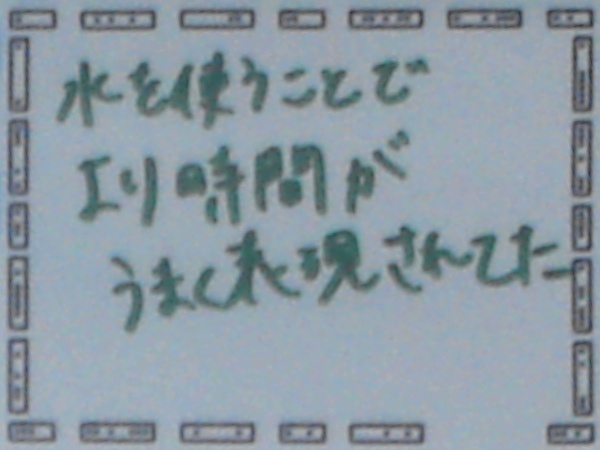 水を使うことで
より時間が
うまく表現されてた